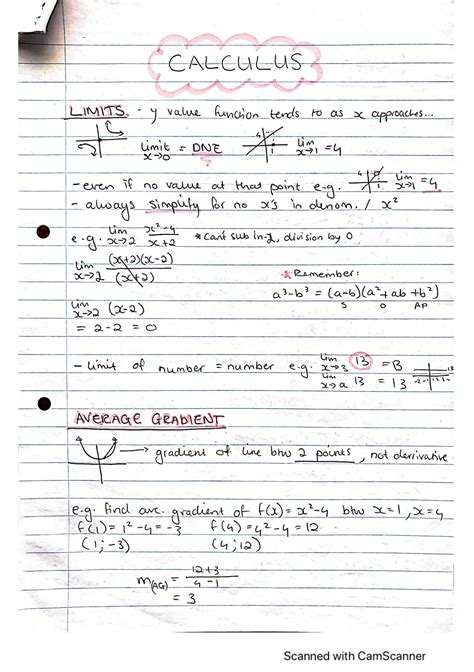 CALCULUS
LIMITS. - y value function tends to as x approaches...
limit x→0 = DNE
4
1
lim x→1 = 4
- even if no value at that point e.g. lim x→1 = 4
- always simplify for no x's in denom. / x²
e.g. lim x→2 x²-4 / x+2 * Can't sub in-2, division by 0
lim x→2 (x+2)(x-2) / (x+2)
* Remember:
a³-b³ = (a-b)(a²+ab+b²)
S O AP
lim x→2 (x-2)
= 2-2 = 0
- limit of number = number e.g. lim x→3 13 = 13
lim x→a 13 = 13
AVERAGE GRADIENT
→ gradient of line btw 2 points, not derivative
e.g. find ave. gradient of f(x) = x²-4 btw x=1, x=4
f(1) = 1²-4 = -3 f(4) = 4²-4 = 12
(1;-3) (4;12)
m(AG) = 12+3 / 4-1
= 3
Scanned with CamScanner